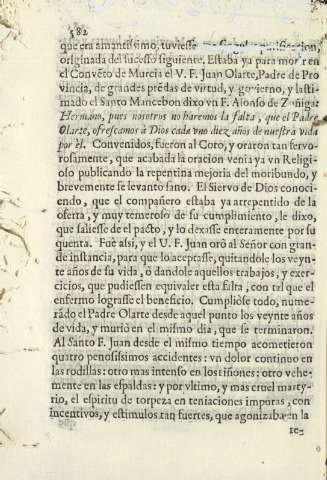 582
que era amantissimo, tuviesse
originada del sucesso siguiente. Estaba ya para morir en
el Convẽto de Murcia el V. F. Juan Olarte, Padre de Pro
vincia, de grandes prẽdas de virtud, y govierno, y lasti-
mado el Santo Mancebon dixo a vn F. Alonso de Zuñiga:
Hermano, pues nosotros no haremos la falta, que el Padre
Olarte, ofrescamos à Dios cada vno diez años de nuestra vida
por èl. Convenidos, fueron al Coro, y oraron tan fervo-
rosamente, que acabada la oracion venia ya vn Religi-
oso publicando la repentina mejoria del moribundo, y
brevemente se levanto sano. El Siervo de Dios conoci-
endo, que el compañero estaba ya arrepentido de la
oferta, y muy temeroso de su cumplimiento, le dixo,
que saliesse de el pacto, y lo dexasse enteramente por su
quenta. Fuè assi, y el V. F. Juan orò al Señor con gran-
de instancia, para que lo aceptasse, quitandole los veyn-
te años de su vida, ò dandole aquellos trabajos, y exer-
cicios, que pudiessen equivaler esta falta, con tal que el
enfermo lograsse el beneficio. Cumpliòse todo, nume-
rãdo el Padre Olarte desde aquel punto los veynte años
de vida, y muriò en el mismo dia, que se terminaron.
Al Santo F. Juan desde el mismo tiempo acometieron
quatro penosissimos accidentes: vn dolor continuo en
las rodillas: otro mas intenso en los riñones: otro vehe-
mente en las espaldas: y por vltimo, y mas cruel marty-
rio, el espiritu de torpeza en tentaciones impuras, con
incentivos, y estimulos tan fuertes, que agonizaba en la
re-